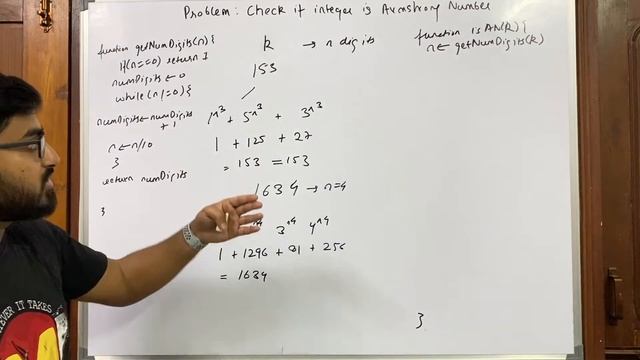 Problem: Check if integer is Armstrong Number
function getNumDigits(n){
if(n==0) return 1
numDigits ← 0
while(n!=0){
numDigits ← numDigits
+1
n ← n/10
}
return numDigits
}
k → n digits
153
1^3 + 5^3 + 3^3
1 + 125 + 27
= 153 = 153
1634 → n=4
3^4 4^4
1 + 1296 + 81 + 256
= 1634
function isAN(k){
n ← getNumDigits(k)
}
EVER IT TAKES